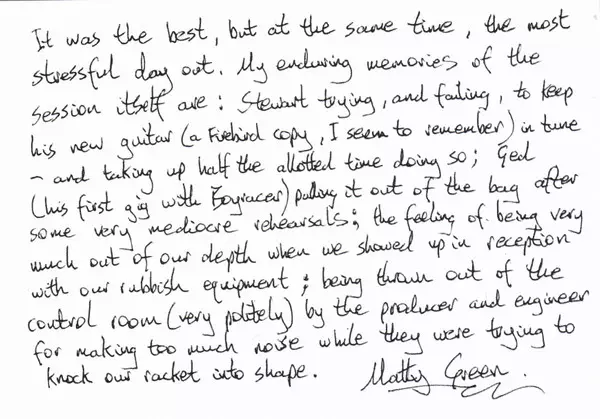 It was the best, but at the same time, the most
stressful day out. My enduring memories of the
session itself are: Stewart trying, and failing, to keep
his new guitar (a Firebird copy, I seem to remember) in tune
– and taking up half the allotted time doing so; Ged
(his first gig with Boyracer) pulling it out of the bag after
some very mediocre rehearsals; the feeling of being very
much out of our depth when we showed up in reception
with our rubbish equipment; being thrown out of the
control room (very politely) by the producer and engineer
for making too much noise while they were trying to
knock our racket into shape. Matty Green.